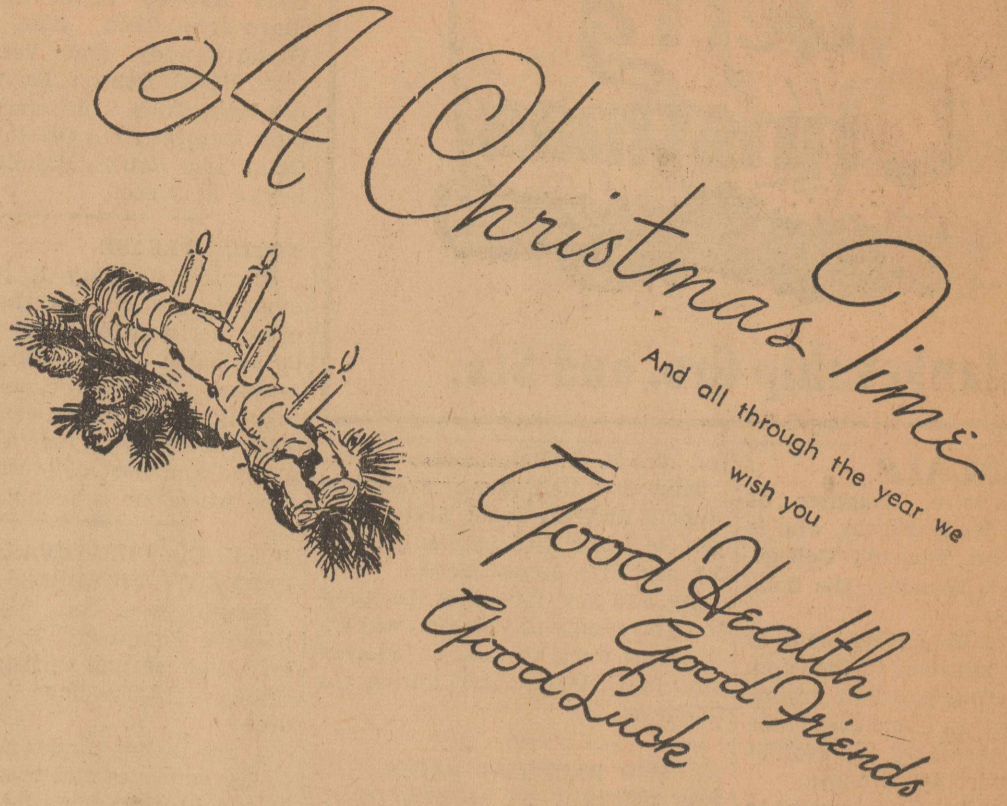 At Christmas Time
And all through the year we
wish you
Good Health
Good Friends
Good Luck